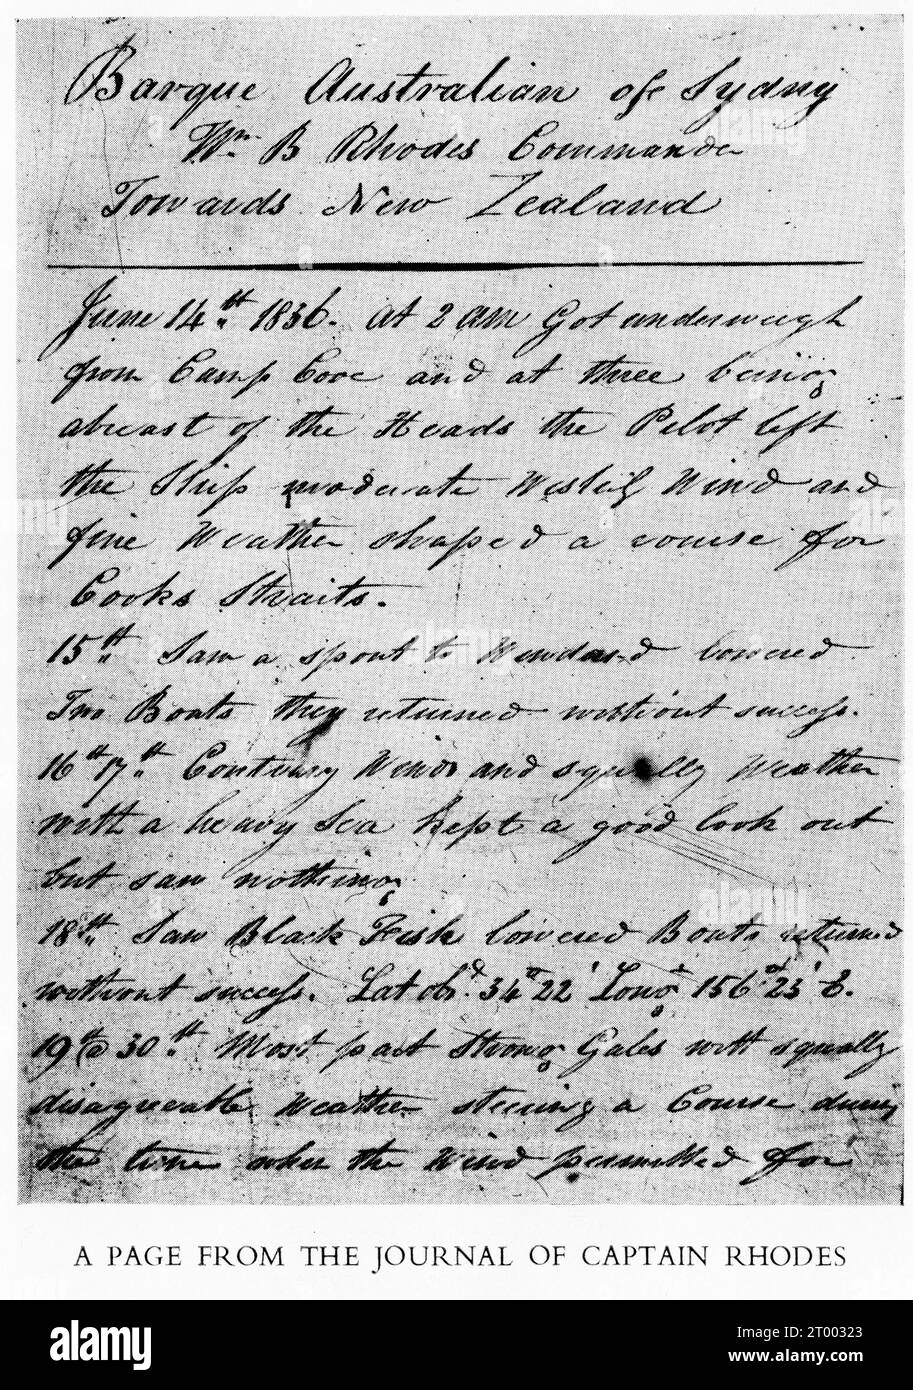 Barque Australian of Sydny
Wm. B Rhodes Commander
Towards New Zealand
June 14th 1836. at 2 am Got underweigh
from Camp Cove and at three being
abreast of the Heads the Pilot left
the Ship moderate Westerly Wind and
fine Weather shaped a course for
Cooks Straits.
15th Saw a spout to Windward lowered
Two Boats they returned without success.
16th 17th Contrary Winds and squally Weather
with a heavy Sea kept a good look out
but saw nothing
18th Saw Black Fish lowered Boats returned
without success. Lat obd. 34° 22' Long 156° 23' E.
19th @ 30th Most part Strong Gales with squally
disagreeable Weather steering a Course during
the time when the Wind permitted for
A PAGE FROM THE JOURNAL OF CAPTAIN RHODES
alamy
Image ID: 2T00323
www.alamy.com